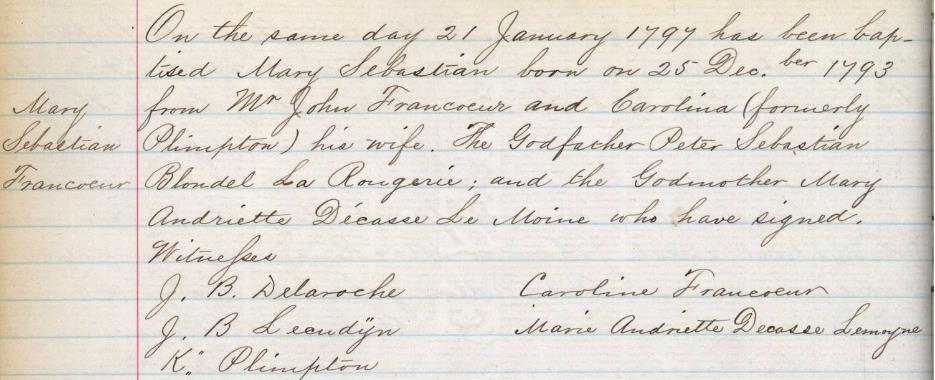 On the same day 21 January 1797 has been bap-
tised Mary Sebastian born on 25 Dec.ber 1793
Mary
from Mr John Francoeur and Carolina (formerly
Sebastian
Plimpton) his wife. The Godfather Peter Sebastian
Francoeur
Blondel La Rougerie; and the Godmother Mary
Andriette Décasse Le Moine who have signed.
Witnesses
J. B. Delaroche
Caroline Francoeur
J. B Lecudÿn
Marie Andriette Decasse Lemoyne
K" Plimpton